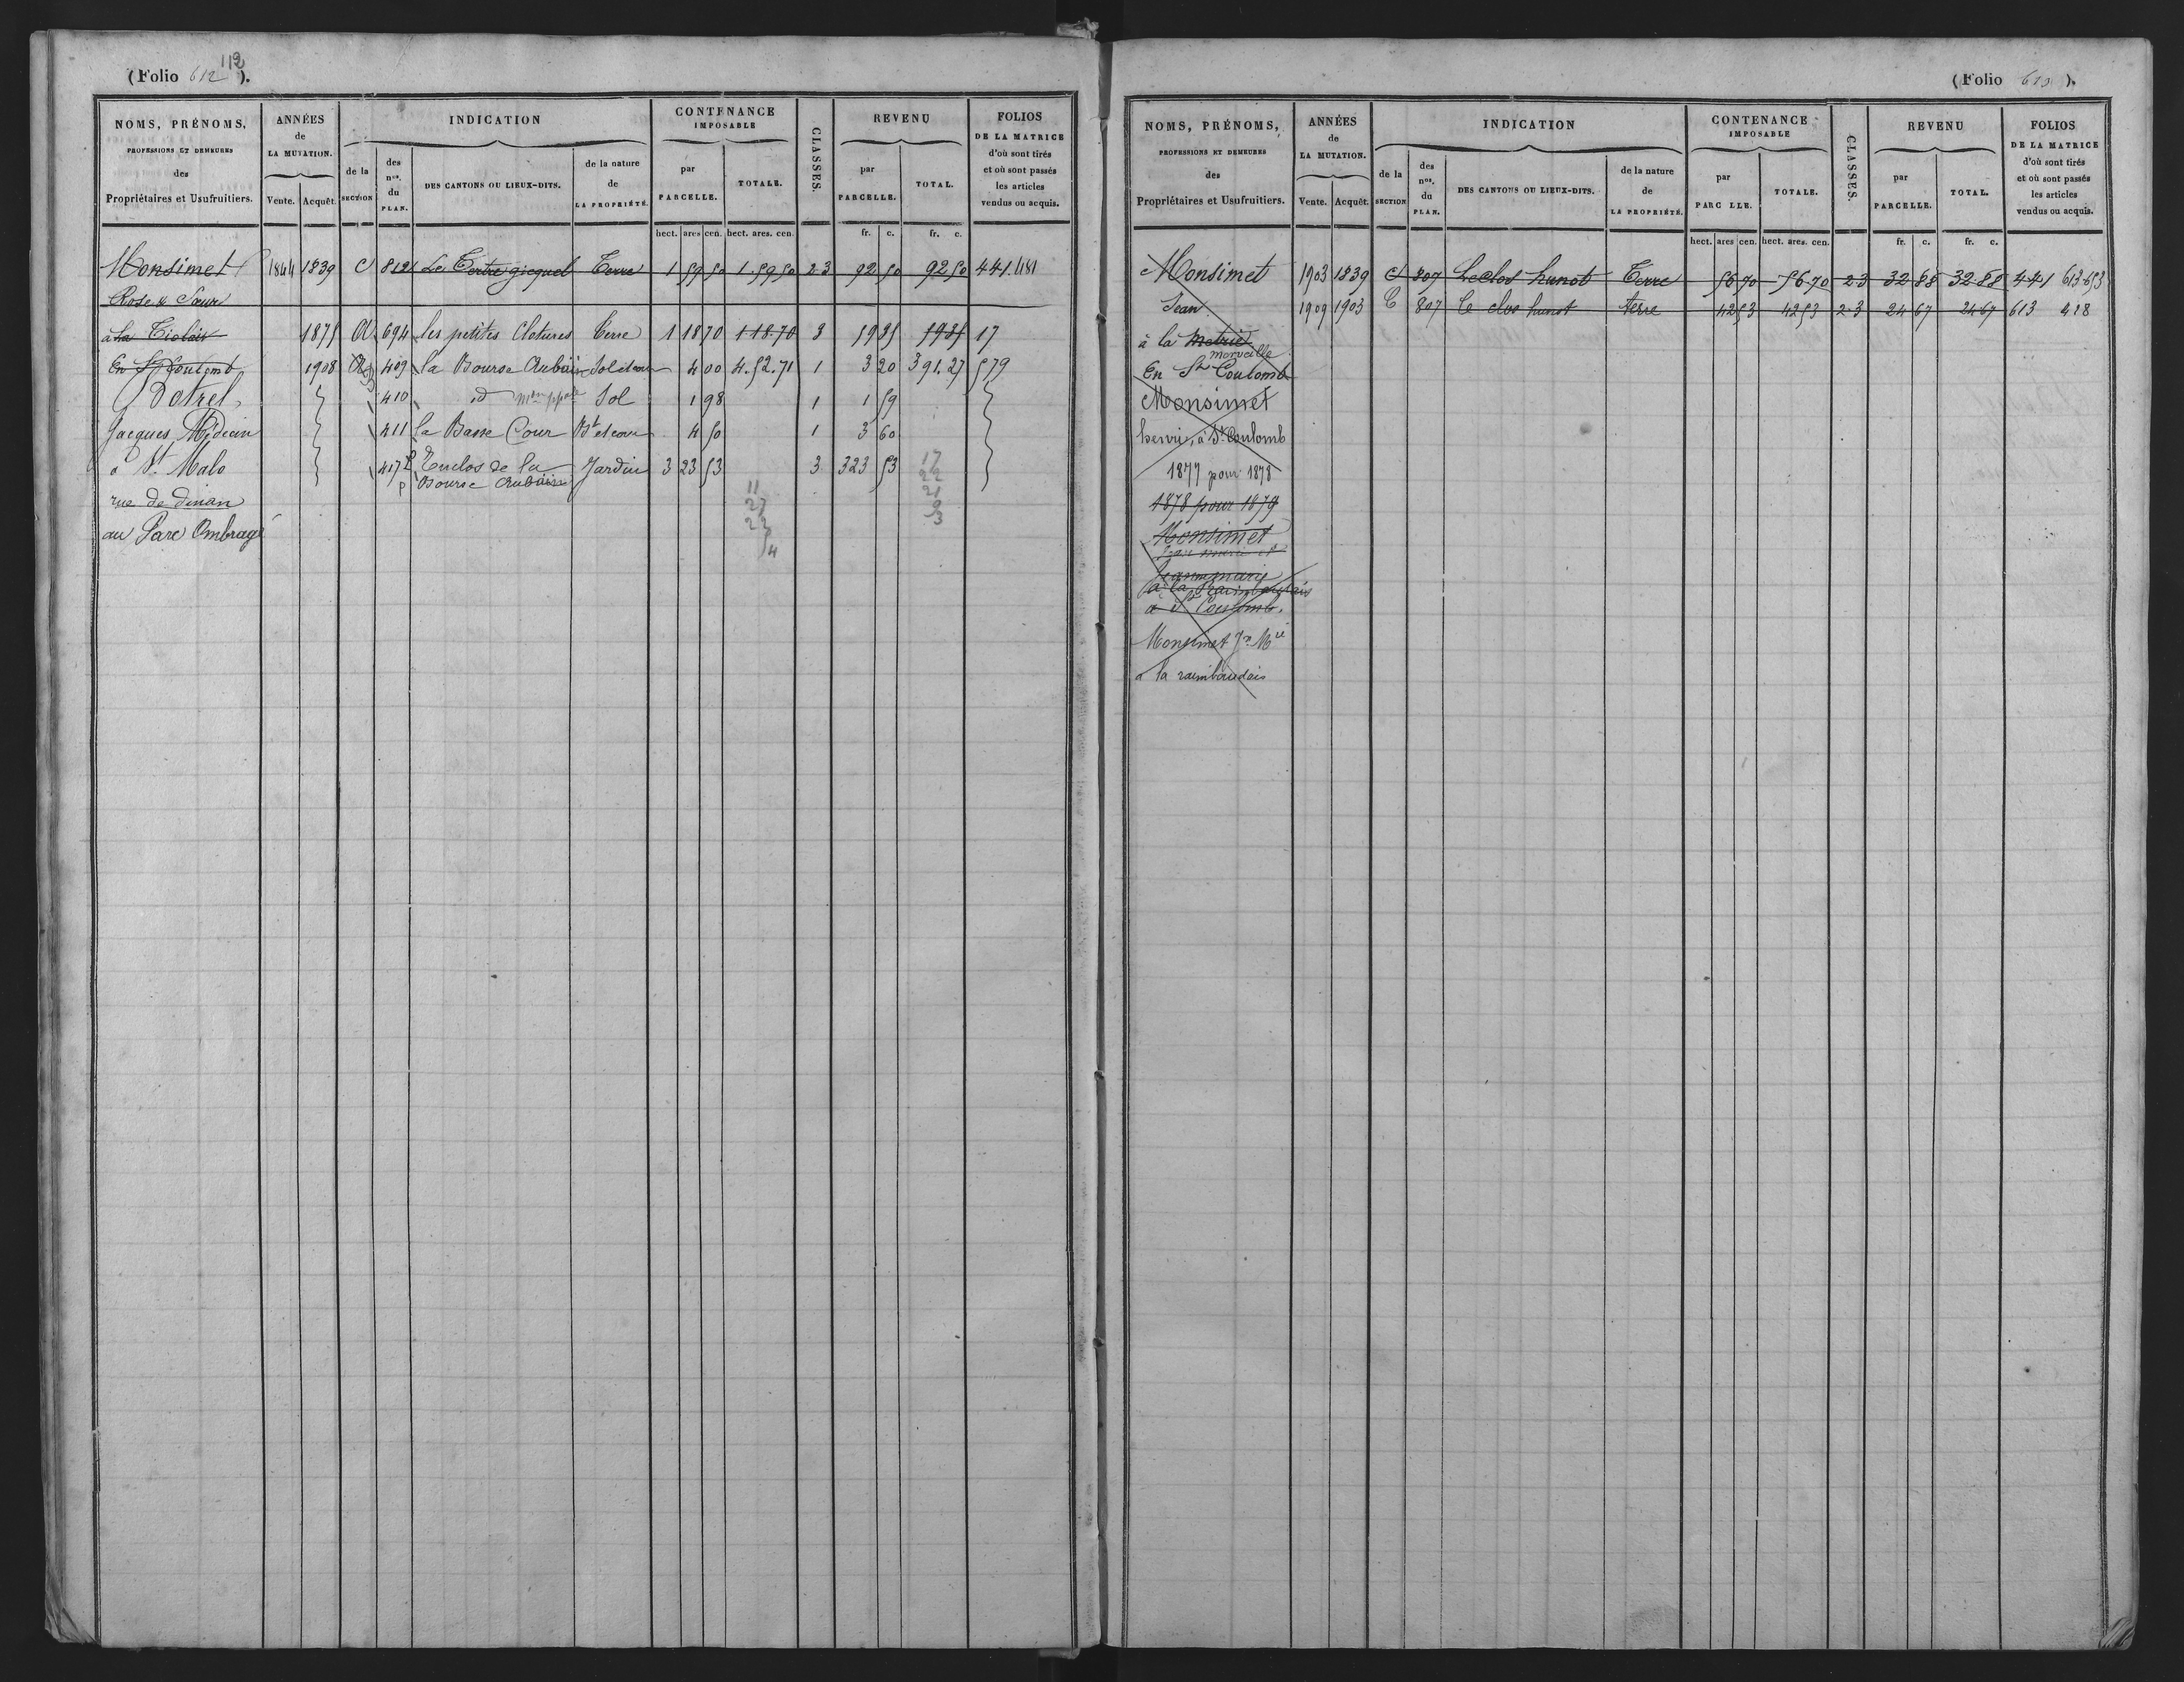 112
(Folio 612).
NOMS, PRÉNOMS,
PROFESSIONS ET DEMEURES
des
Propriétaires et Usufruitiers.
ANNÉES
de
LA MUTATION.
Vente. Acquêt.
INDICATION
de la
SECTION
des
nos.
du
PLAN.
DES CANTONS OU LIEUX-DITS.
de la nature
de
LA PROPRIÉTÉ.
CONTENANCE
IMPOSABLE
par
PARCELLE.
TOTALE.
CLASSES.
REVENU
par
PARCELLE.
TOTAL.
FOLIOS
DE LA MATRICE
d'où sont tirés
et où sont passés
les articles
vendus ou acquis.
hect. ares cen. hect. ares. cen. fr. c. fr. c.
Monsimet 1844 1839 C 812 Le Tertre gicquel Terre 1 59 50 1.59 50 2-3 92 50 92 50 441.481
Rose & Sœur
à la 1875 A 694 les petites Clotures Terre 1 18 70 1-18-70 3 19 35 19 35 17
En St Coulomb 1908 A 409 la Bourse Aubain Sol et cour 4 00 4.52.71 1 3 20 391.27 579
Botrel, 410 id Sol 1 98 1 1 59
Jacques, Médecin 411 la Basse Cour Bt et cour 4 50 1 3 60
à St Malo 417 P Enclos de la Jardin 3 23 53 3 323 53
p Bourse Aubain
rue de dinan
au Parc Ombragé
17
22
21
9
3
11
27
22
54
(Folio 613).
NOMS, PRÉNOMS,
PROFESSIONS ET DEMEURES
des
Propriétaires et Usufruitiers.
ANNÉES
de
LA MUTATION.
Vente. Acquêt.
INDICATION
de la
SECTION
des
nos.
du
PLAN.
DES CANTONS OU LIEUX-DITS.
de la nature
de
LA PROPRIÉTÉ.
CONTENANCE
IMPOSABLE
par
PARC LLE.
TOTALE.
CLASSES.
REVENU
par
PARCELLE.
TOTAL.
FOLIOS
DE LA MATRICE
d'où sont tirés
et où sont passés
les articles
vendus ou acquis.
hect. ares cen. hect. ares. cen. fr. c. fr. c.
Monsimet 1903 1839 C 807 Le clos hunot Terre 56 70 56 70 2-3 32 88 32 88 441 613-653
Jean. 1909 1903 C 807 le clos hunot terre 42 53 42 53 2-3 24 67 24 67 613 418
à la Metrie
merveille
En St Coulomb
Monsimet
henri, à St Coulomb
1877 pour 1878
1878 pour 1879
Monsimet
Jean marie et
Jeanne marie
à la Raimbaudais
à St Coulomb.
Monsimet Jn Mie
à la raimbaudais